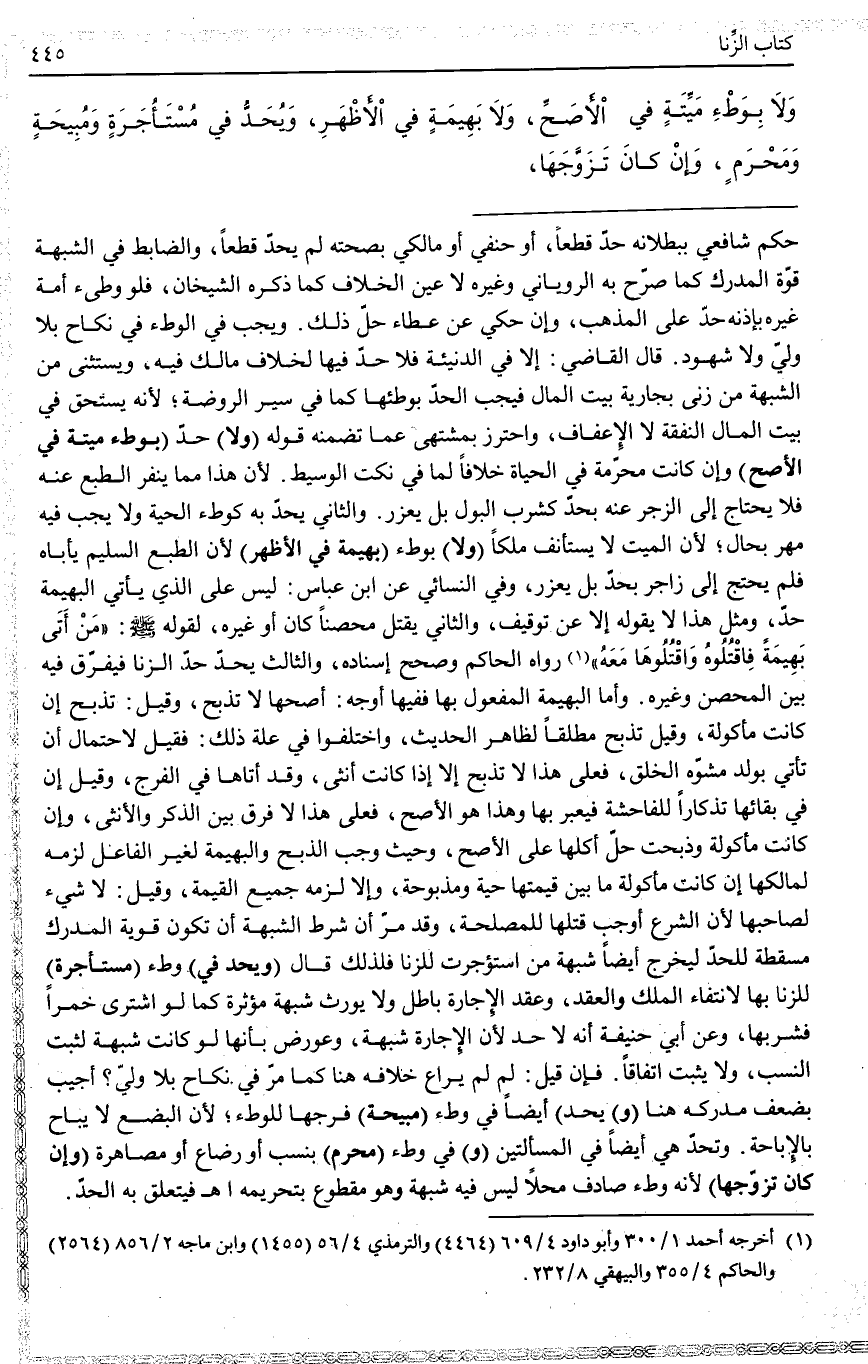 كتاب الزِّنا
٤٤٥
وَلَا بِوَطْءِ مَيِّتَةٍ في الْأَصَحِّ، وَلَا بَهِيمَةٍ في الْأَظْهَرِ، وَيُحَدُّ في مُسْتَأْجَرَةٍ وَمُبِيحَةٍ
وَمَحْرَمٍ، وَإِنْ كانَ تَزَوَّجَهَا،
حكم شافعي ببطلانه حدّ قطعاً، أو حنفي أو مالكي بصحته لم يحدّ قطعاً، والضابط في الشبهة
قوّة المدرك كما صرّح به الروياني وغيره لا عين الخلاف كما ذكره الشيخان، فلو وطىء أمة
غيره بإذنه حدّ على المذهب، وإن حكي عن عطاء حلّ ذلك. ويجب في الوطء في نكاح بلا
وليّ ولا شهود. قال القاضي: إلا في الدنيئة فلا حدّ فيها لخلاف مالك فيه، ويستثنى من
الشبهة من زنى بجارية بيت المال فيجب الحدّ بوطئها كما في سير الروضة؛ لأنه يستحق في
بيت المال النفقة لا الإعفاف، واحترز بمشتهى عما تضمنه قوله (ولا) حدّ (بوطء ميتة في
الأصح) وإن كانت محرّمة في الحياة خلافاً لما في نكت الوسيط. لأن هذا مما ينفر الطبع عنه
فلا يحتاج إلى الزجر عنه بحدّ كشرب البول بل يعزر. والثاني يحدّ به كوطء الحية ولا يجب فيه
مهر بحال؛ لأن الميت لا يستأنف ملكاً (ولا) بوطء (بهيمة في الأظهر) لأن الطبع السليم يأباه
فلم يحتج إلى زاجر بحدّ بل يعزر، وفي النسائي عن ابن عباس: ليس على الذي يأتي البهيمة
حدّ، ومثل هذا لا يقوله إلا عن توقيف، والثاني يقتل محصناً كان أو غيره، لقوله ﷺ: «مَنْ أَتَى
بَهِيمَةً فَاقْتُلُوهُ وَاقْتُلُوهَا مَعَهُ»(١) رواه الحاكم وصحح إسناده، والثالث يحدّ حدّ الزنا فيفرّق فيه
بين المحصن وغيره. وأما البهيمة المفعول بها ففيها أوجه: أصحها لا تذبح، وقيل: تذبح إن
كانت مأكولة، وقيل تذبح مطلقاً لظاهر الحديث، واختلفوا في علة ذلك: فقيل لاحتمال أن
تأتي بولد مشوّه الخلق، فعلى هذا لا تذبح إلا إذا كانت أنثى، وقد أتاها في الفرج، وقيل إن
في بقائها تذكاراً للفاحشة فيعبر بها وهذا هو الأصح، فعلى هذا لا فرق بين الذكر والأنثى، وإن
كانت مأكولة وذبحت حلّ أكلها على الأصح، وحيث وجب الذبح والبهيمة لغير الفاعل لزمه
لمالكها إن كانت مأكولة ما بين قيمتها حية ومذبوحة، وإلا لزمه جميع القيمة، وقيل: لا شيء
لصاحبها لأن الشرع أوجب قتلها للمصلحة، وقد مرّ أن شرط الشبهة أن تكون قوية المدرك
مسقطة للحدّ ليخرج أيضاً شبهة من استؤجرت للزنا فلذلك قال (ويحد في) وطء (مستأجرة)
للزنا بها لانتفاء الملك والعقد، وعقد الإجارة باطل ولا يورث شبهة مؤثرة كما لو اشترى خمراً
فشربها، وعن أبي حنيفة أنه لا حد لأن الإجارة شبهة، وعورض بأنها لو كانت شبهة لثبت
النسب، ولا يثبت اتفاقاً. فإن قيل: لم لم يراع خلافه هنا كما مرّ في نكاح بلا وليّ؟ أجيب
بضعف مدركه هنا (و) يحد) أيضاً في وطء (مبيحة) فرجها للوطء؛ لأن البضع لا يباح
بالإباحة. وتحدّ هي أيضاً في المسألتين (و) في وطء (محرم) بنسب أو رضاع أو مصاهرة (وإن
كان تزوّجها) لأنه وطء صادف محلاًّ ليس فيه شبهة وهو مقطوع بتحريمه ا هـ فيتعلق به الحدّ.
(١) أخرجه أحمد ٣٠٠/١ وأبو داود ٦٠٩/٤ (٤٤٦٤) والترمذي ٥٦/٤ (١٤٥٥) وابن ماجه ٨٥٦/٢ (٢٥٦٤)
والحاكم ٣٥٥/٤ والبيهقي ٢٣٢/٨.